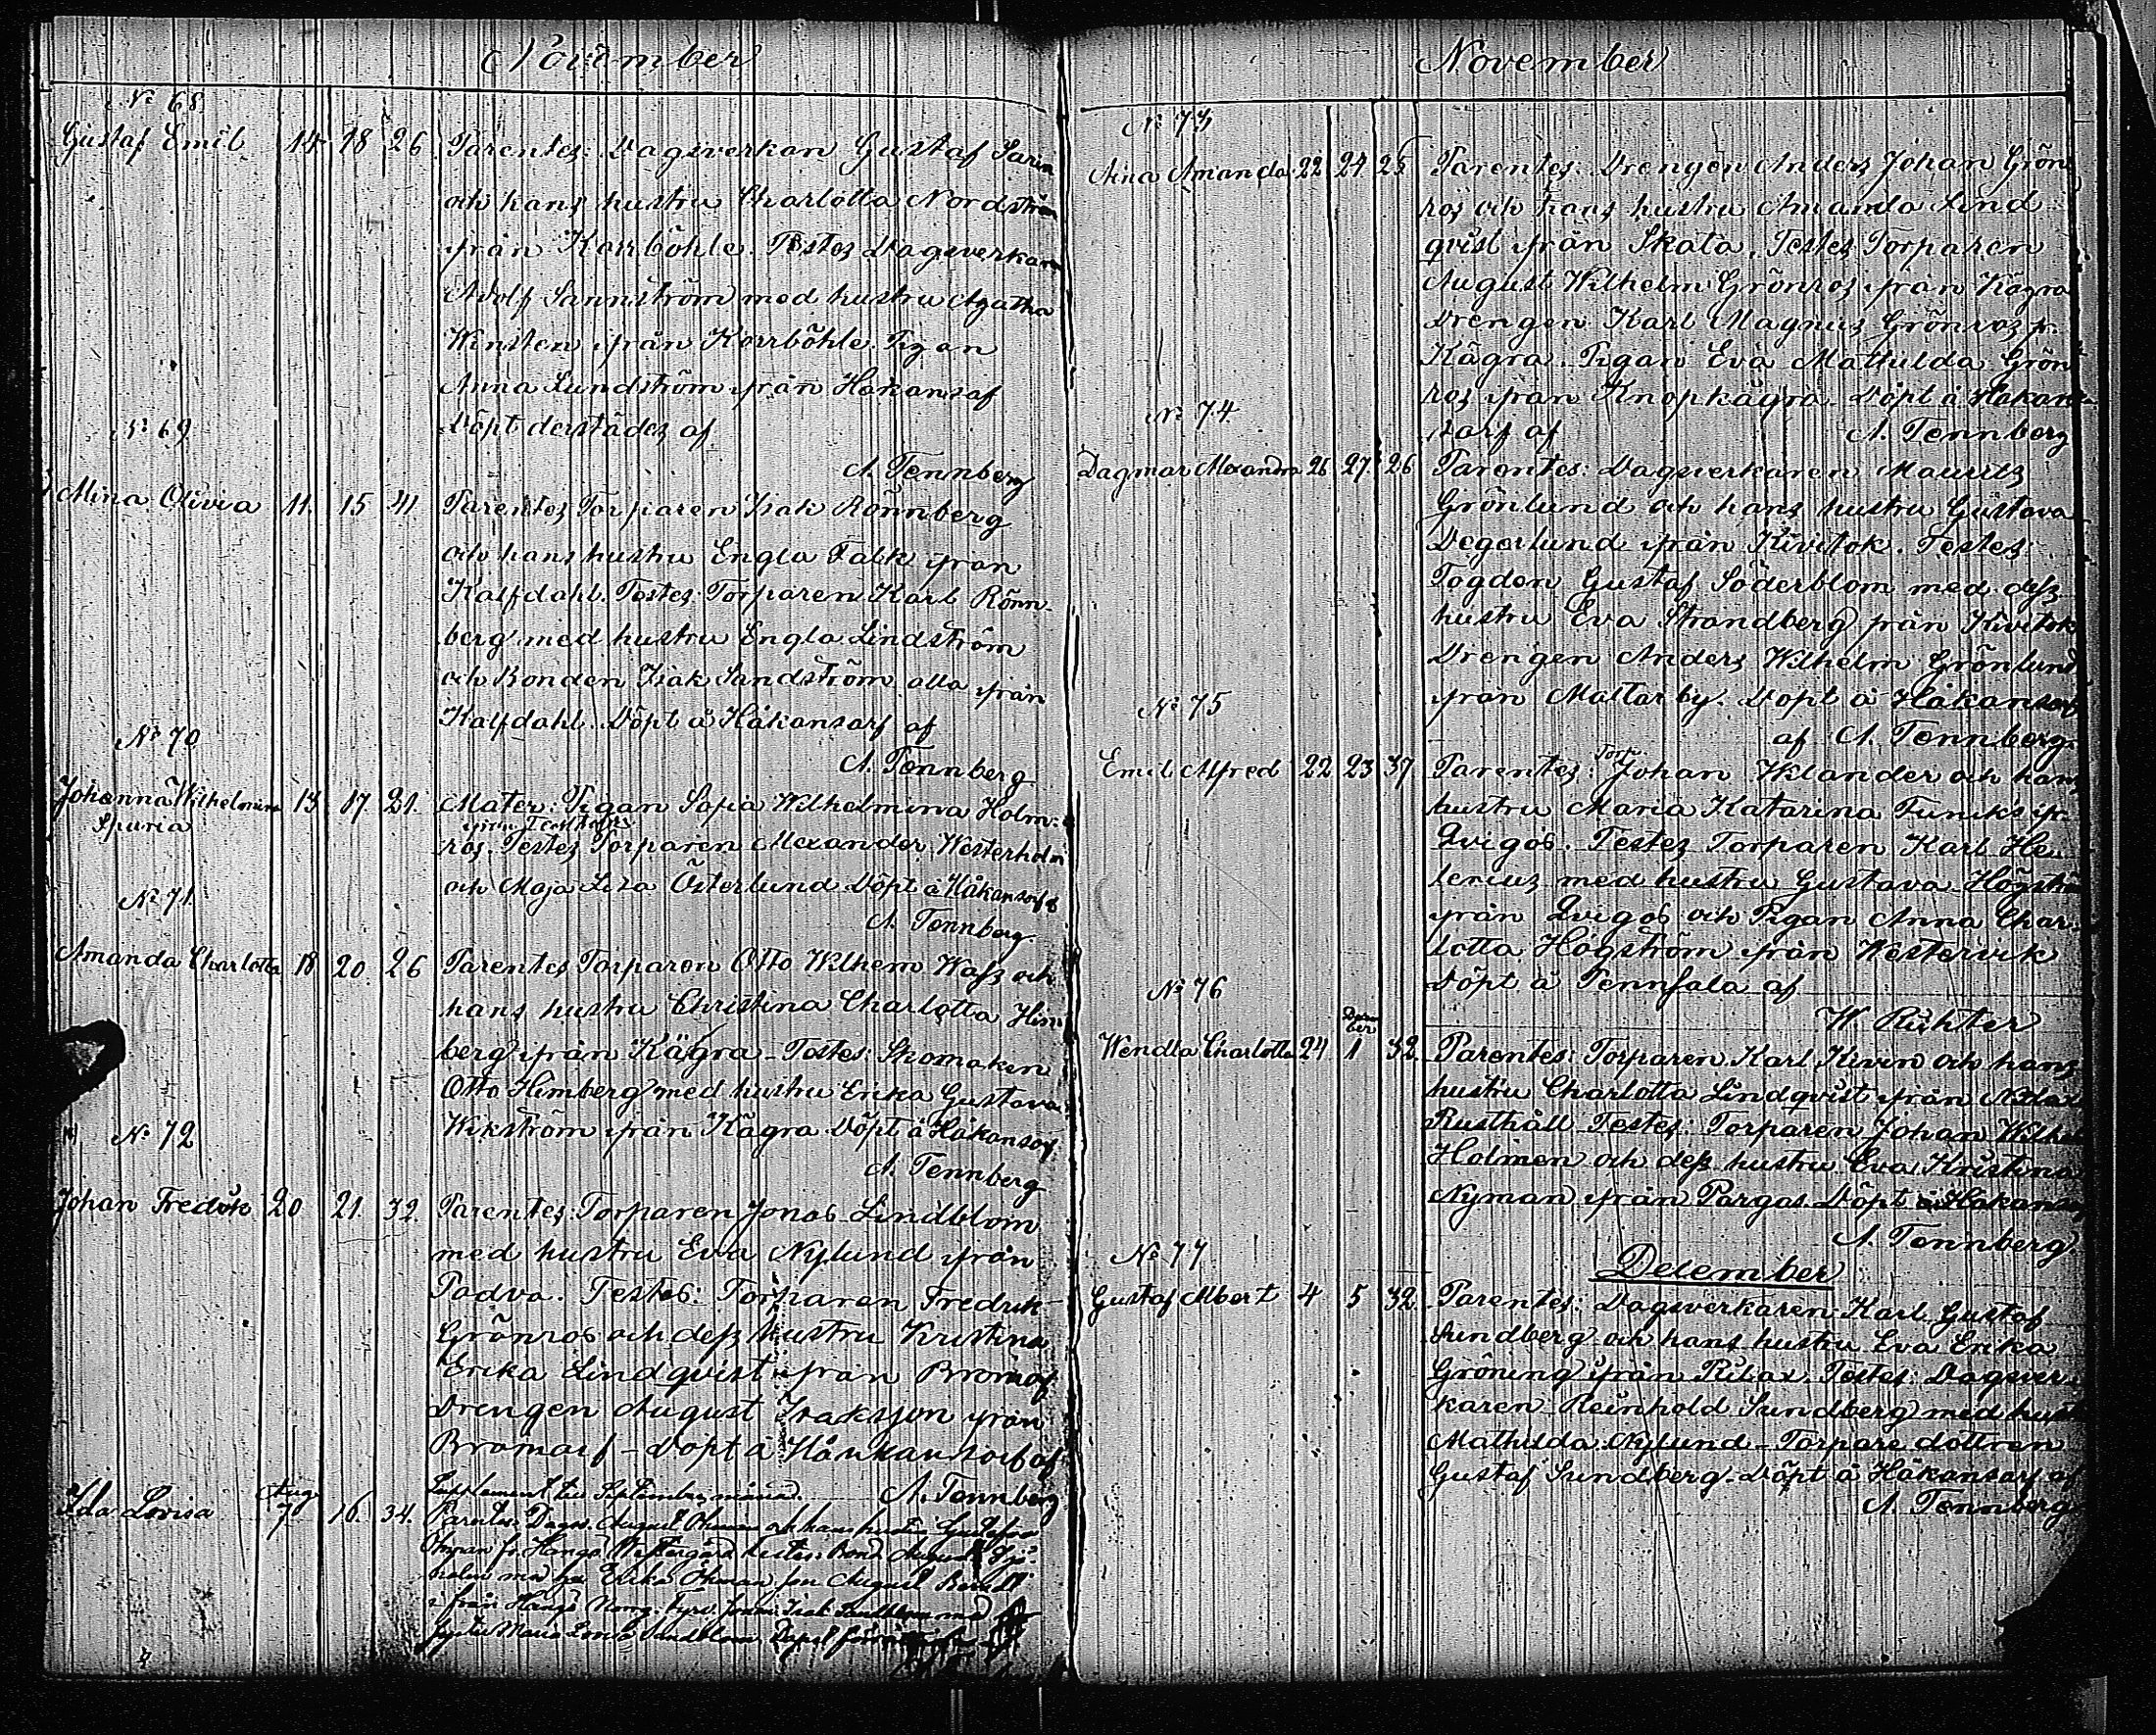 November
Nº 68
Gustaf Emil 14 18 26 Parentes: Dagsverkaren Gustaf Sarin
och hans hustru Charlotta Nordström
från Korrböhle. Testes Dagsverkaren
Adolf Sannström med hustru Agatha
från Korrböhle. Pigan
Anna Lundström från Håkansarf
Döpt derstädes af
A. Tennberg
Nº 69
Mina Olivia 11. 15 41 Parentes Torparen Isak Rönnberg
och hans hustru Engla Falk från
Kalfdahl. Testes Torparen Karl Rönn-
berg med hustru Engla Lindström
och Bonden Isak Sandström alla från
Kalfdahl. Döpt å Håkansarf af
A. Tennberg
Nº 70
Johanna Wilhelmina 13 17 21. Mater: Pigan Sofia Wilhelmina Holm-
Spuria
ros. Testes Torparen Alexander Westerholm
och Maja Lisa Österlund Döpt å Håkansarf af
A. Tennberg.
Nº 71
Amanda Charlotta 18 20 26 Parentes Torparen Otto Wilhem Wass och
hans hustru Christina Charlotta Him
berg från Kägra - Testes: Skomakern
Otto Himberg med hustru Erika Gustava
Wikström från Kägra Döpt å Håkansarf.
A. Tennberg
Nº 72
Johan Fredrik 20 21. 32. Parentes: Torparen Jonas Lindblom
med hustru Eva Nylund från
Padva. Testes: Torparen Fredrik
Grönros och dess hustru Kristina
Erika Lindqvist från Bromarf
Drengen August Isaksson från
Bromarf - Döpt å Håkansarf af
A. Tennberg
Supplement till September månad.
Ida Lovisa Aug 7 16. 34. Parentes: Dagsv. August Öhman och hans hustru Gustafva
Öhman fr. Hangö Westergård Testes: Bond. August
holm med hu Erika Öhman
i från Hangö Isak Sandblom med
Maria Lovisa Sandblom. Döpt
November
Nº 73
Aina Amanda 22 24 25 Parentes: Drengen Anders Johan Grön
ros och hans hustru Amanda Lind
qvist från Skata. Testes Torparen
August Wilhelm Grönros från Kägra
Drengen Karl Magnus Grönros fr.
Kägra. Pigan Eva Mathilda Grön
ros från Knopkägra. Döpt å Håkans-
arf af A. Tennberg
Nº 74
Dagmar Alexandra 26 27 26 Parentes: Dagsverkaren Maurits
Grönlund och hans hustru Gustava
Degerlund från Kivitok. Testes:
Fogden Gustaf Söderblom med dess
hustru Eva Strandberg från Kivitok
Drengen Anders Wilhelm Grönlund
från Mattarby. Döpt å Håkansarf
af A. Tennberg.
Nº 75
Emil Alfred 22 23 37 Parentes: Torp. Johan Wlander och hans
hustru Maria Katarina Funiks fr.
Qvigos. Testes Torparen Karl He-
lenius med hustru Gustava Högström
från Qvigos och Pigan Anna Char-
lotta Högström från Westervik
Döpt å Tennfala af
W. Richter
Nº 76
Wendla Charlotta 24 December 1 32. Parentes: Torparen Karl Kivin och hans
hustru Charlotta Lindqvist från
Rusthåll Testes: Torparen Johan Wilhelm
Holmén och dess hustru Eva Kristina
Nyman från Pargas Döpt å Håkansarf
A. Tennberg.
Nº 77
December
Gustaf Albert 4 5 32 Parentes: Dagsverkaren Karl Gustaf
Sundberg och hans hustru Eva Erika
Gröning från Rilax. Testes: Dagsver-
karen Reinhold Sundberg med hust
Mathilda Nylund - Torpare dottren
Gustaf Sundberg. Döpt å Håkansarf af
A. Tennberg